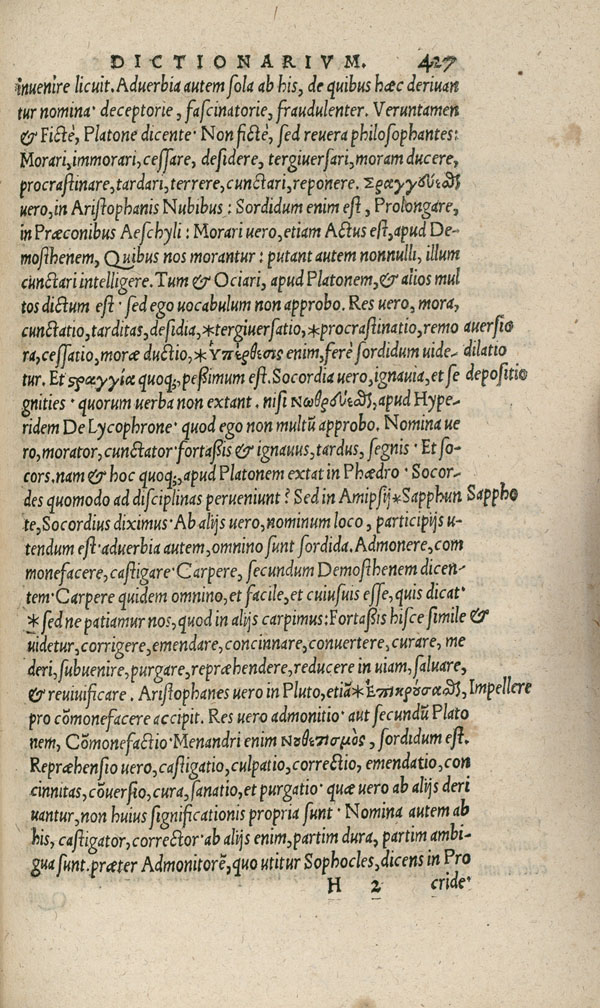 DICTIONARIVM. 427
inuenire licuit. Aduerbia autem sola ab his, de quibus hæc deriuan
tur nomina· deceptorie, fascinatorie, fraudulenter. Veruntamen
& Fictè, Platone dicente· Non fictè, sed reuera philosophantes:
Morari, immorari, cessare, desidere, tergiuersari, moram ducere,
procrastinare, tardari, terrere, cunctari, reponere. Σραγγδύεσθαι
uero, in Aristophanis Nubibus: Sordidum enim est, Prolongare,
in Præconibus Aeschyli: Morari uero, etiam Actus est, apud De-
mosthenem, Quibus nos morantur: putant autem nonnulli, illum
cunctari intelligere. Tum & Ociari, apud Platonem, & alios mul
tos dictum est· sed ego uocabulum non approbo. Res uero, mora,
cunctatio, tarditas, desidia, *tergiuersatio, *procrastinatio, remo auersio
ra, cessatio, moræ ductio, *ὑπερθεσις enim, ferè sordidum uide- dilatio
tur. Et σραγγία quoq;, peßimum est. Socordia uero, ignauia, et se depositio
gnities· quorum uerba non extant. nisi νωθρδύεσθαι, apud Hype-
ridem De Lycophrone· quod ego non multũ approbo. Nomina ue
ro, morator, cunctator· fortaßis & ignauus, tardus, segnis· Et so-
cors. nam & hoc quoq;, apud Platonem extat in Phædro· Socor-
des quomodo ad disciplinas perueniunt? Sed in Amipsij *Sapphun Sappho
te, Socordius diximus· Ab alijs uero, nominum loco, participijs u-
tendum est· aduerbia autem, omnino sunt sordida. Admonere, com
monefacere, castigare· Carpere, secundum Demosthenem dicen-
tem· Carpere quidem omnino, et facile, et cuiusuis esse, quis dicat·
* sed ne patiamur nos, quod in alijs carpimus: Fortaßis hisce simile &
uidetur, corrigere, emendare, concinnare, conuertere, curare, me
deri, subuenire, purgare, repræhendere, reducere in uiam, saluare,
& reuiuificare. Aristophanes uero in Pluto, etiã *ἐπικρόσασθαι, Impellere
pro cõmonefacere accipit. Res uero admonitio· aut secundũ Plato
nem, Cõmonefactio· Menandri enim νοθετισμὸς, sordidum est.
Repræhensio uero, castigatio, culpatio, correctio, emendatio, con
cinnitas, cõuersio, cura, sanatio, et purgatio· quæ uero ab alijs deri
uantur, non huius significationis propria sunt· Nomina autem ab
his, castigator, corrector· ab alijs enim, partim dura, partim ambi-
gua sunt. præter Admonitorẽ, quo utitur Sophocles, dicens in Pro
H 2 cride·